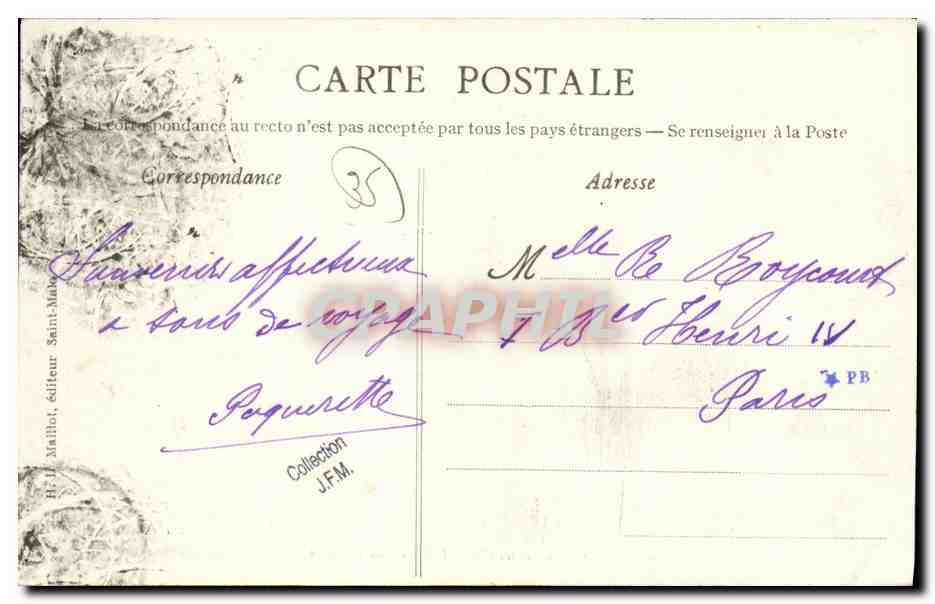 CARTE POSTALE
La correspondance au recto n'est pas acceptée par tous les pays étrangers — Se renseigner à la Poste
Correspondance
35
Adresse
Souvenir affectueux
a tous de voyage
Paquerette
Collection
J.F.M.
Melle
7 Bd Henri IV
Paris
PB
GRAPHIL
H. L. Maillot, éditeur Saint-Malo